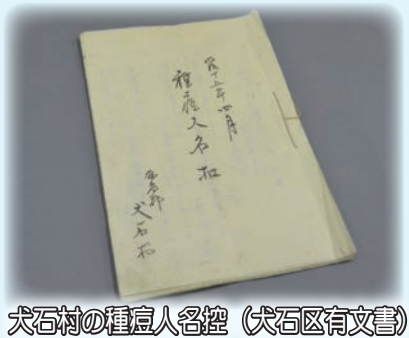 十五年四月
種痘人名扣
犬石村
犬石村の種痘人名控（犬石区有文書）